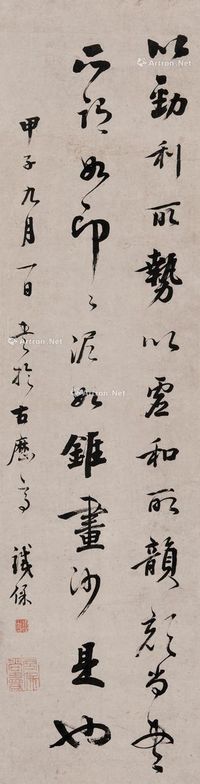 以勁利取勢以虛和取韻顏尚書
所謂如印〻泥如錐畫沙是也
甲子九月一日書於古歷亭
鐵保
Artron.Net